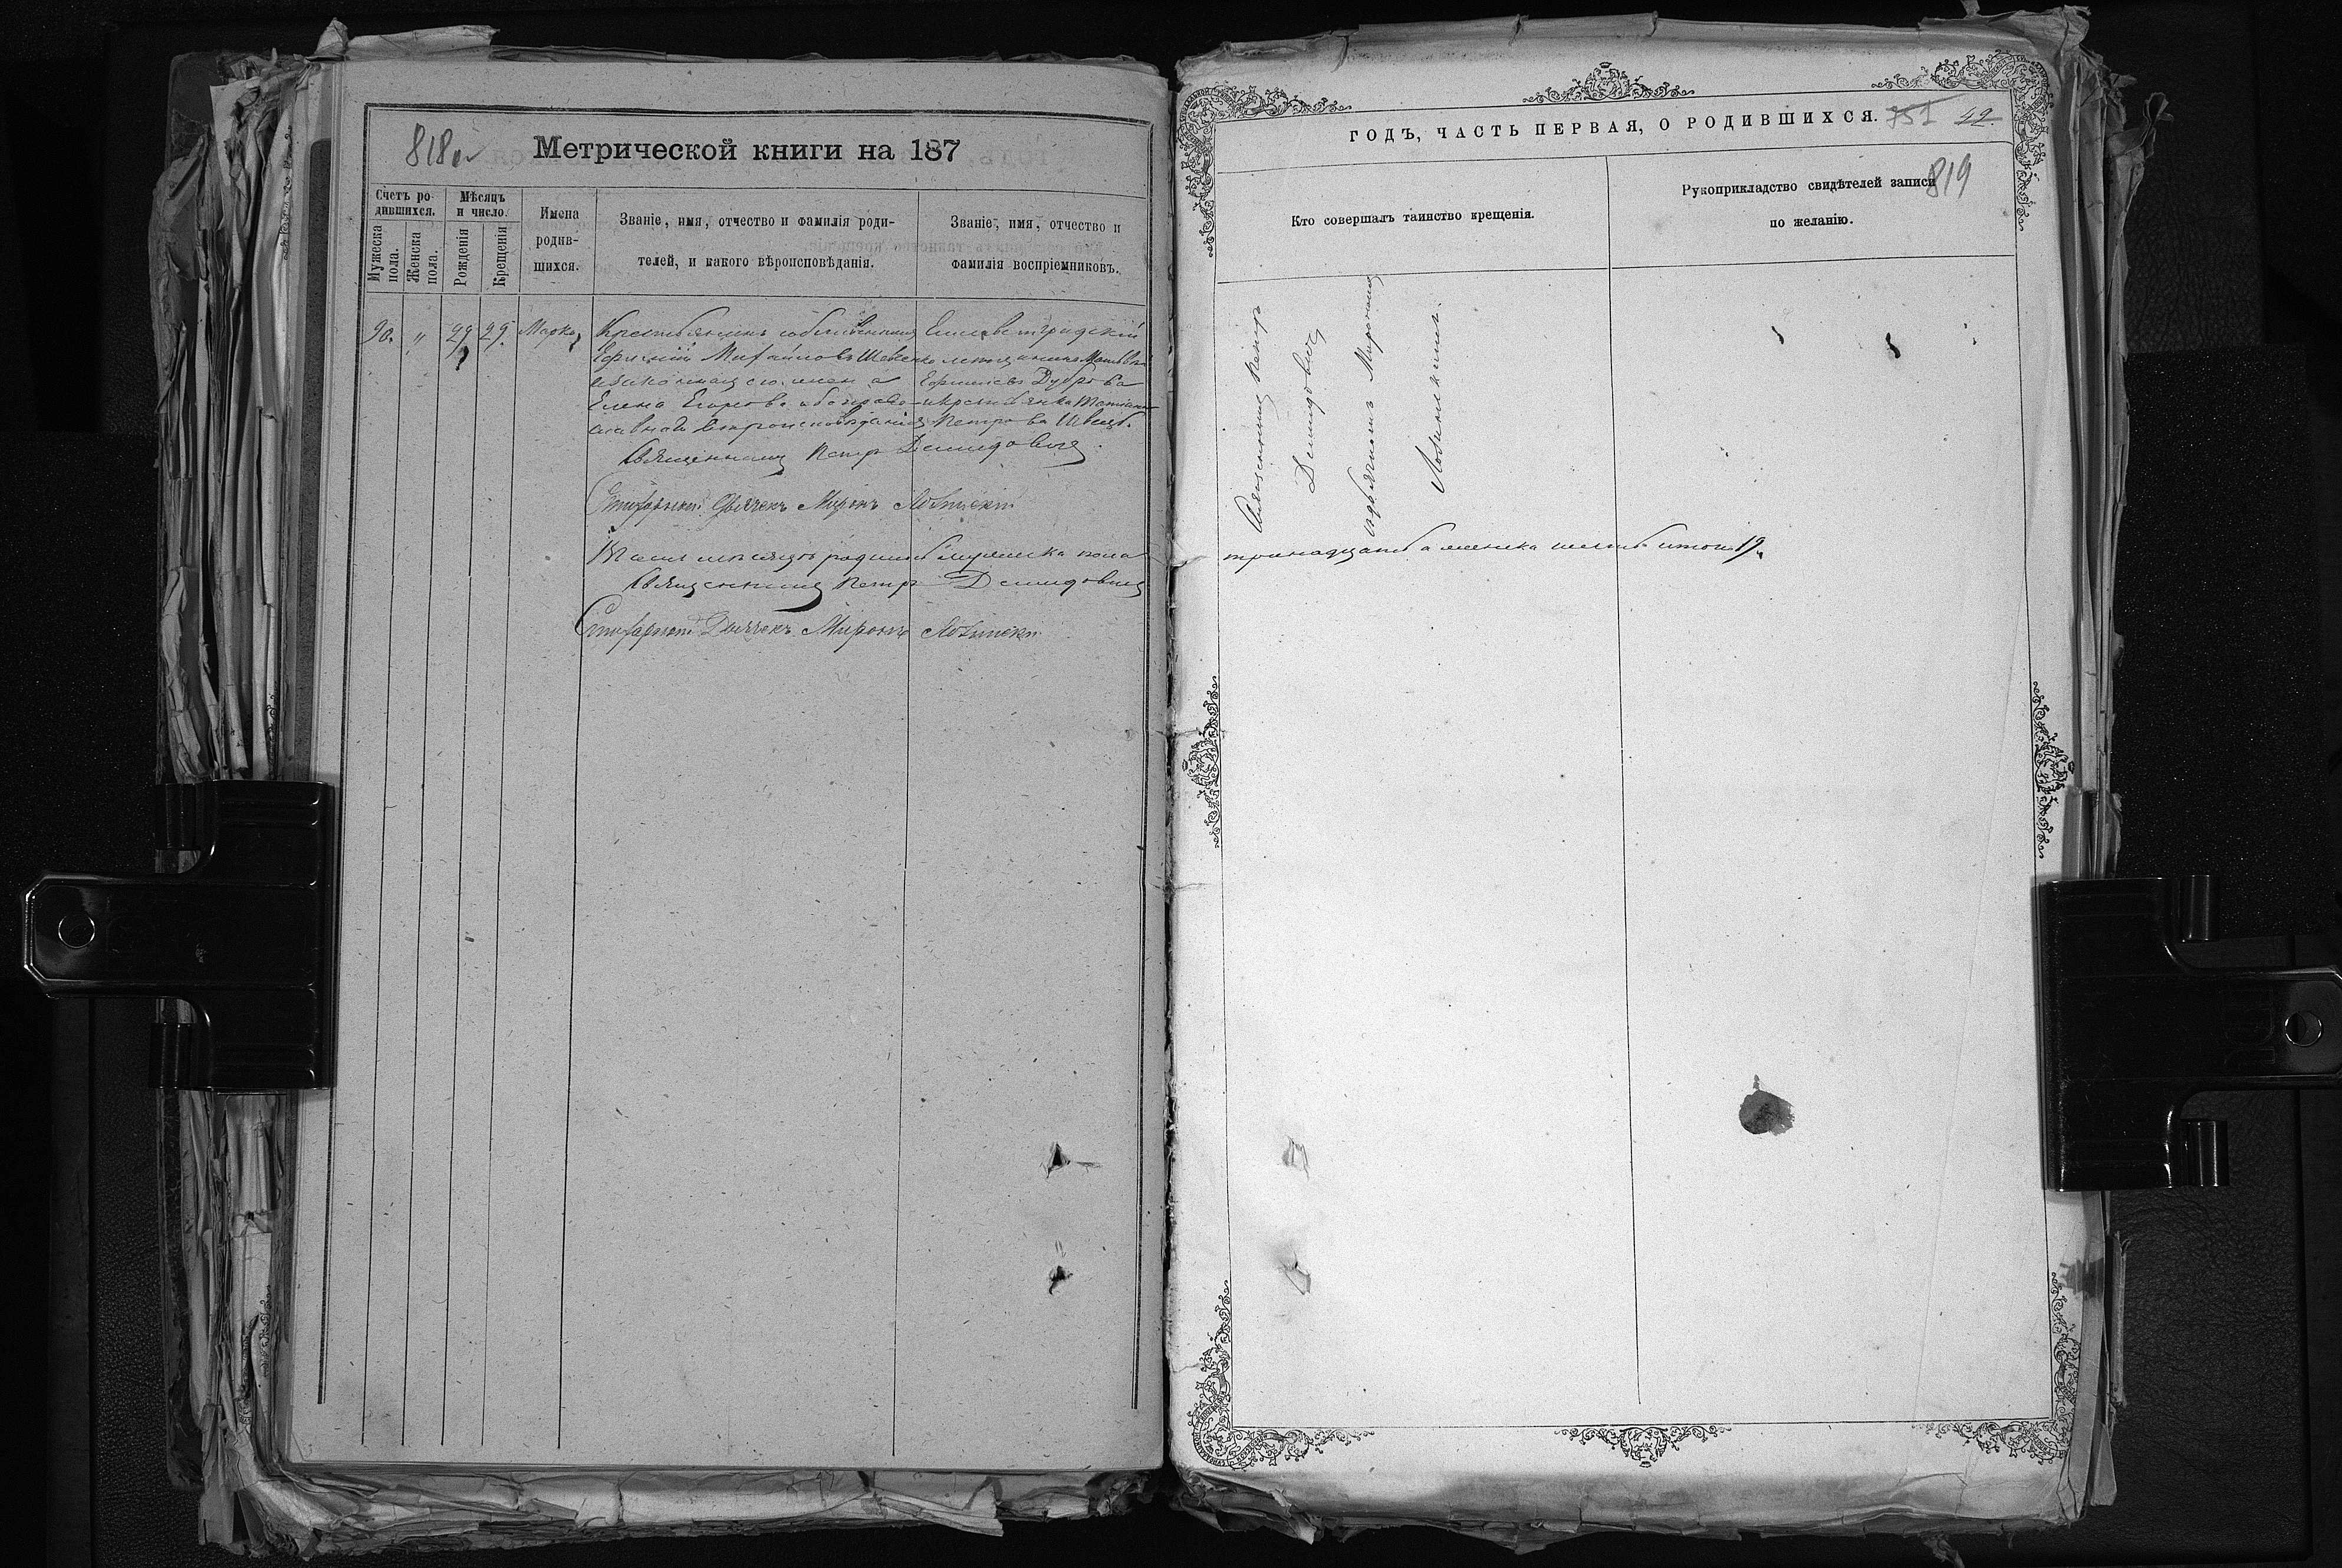 818об
Метрической книги на 187
Счетъ ро-
дившихся.
Мужеска
пола.
Женска
пола.
Мѣсяцъ
и число.
Рожденія
Крещенія
Имена
родив-
шихся.
Званіе, имя, отчество и фамилія роди-
телей, и какого вѣроисповѣданія.
Званіе, имя, отчество и
фамилія воспріемниковъ.
90. " 29. 29. Марко,
Крестьянинъ собственникъ
Михайловъ Шевченко
и законная его жена
Елена Егорова оба право-
славнаго вѣроисповѣданія
Елисаветградскій
Дуброва
и крестьянка
Петрова Швецъ.
Священникъ Петръ Демидовичъ.
Стихарный Дьячекъ Миронъ
родилось мужеска пола
Священникъ Петръ Демидовичъ
Стихарный Дьячекъ Миронъ
ГОДЪ, ЧАСТЬ ПЕРВАЯ, О РОДИВШИХСЯ.
751 42.
819
Кто совершалъ таинство крещенія.
Рукоприкладство свидѣтелей записи
по желанію.
Священникъ Петръ
Демидовичъ
съ дьячкомъ Мирономъ
тринадцать а женска шесть итого 19.